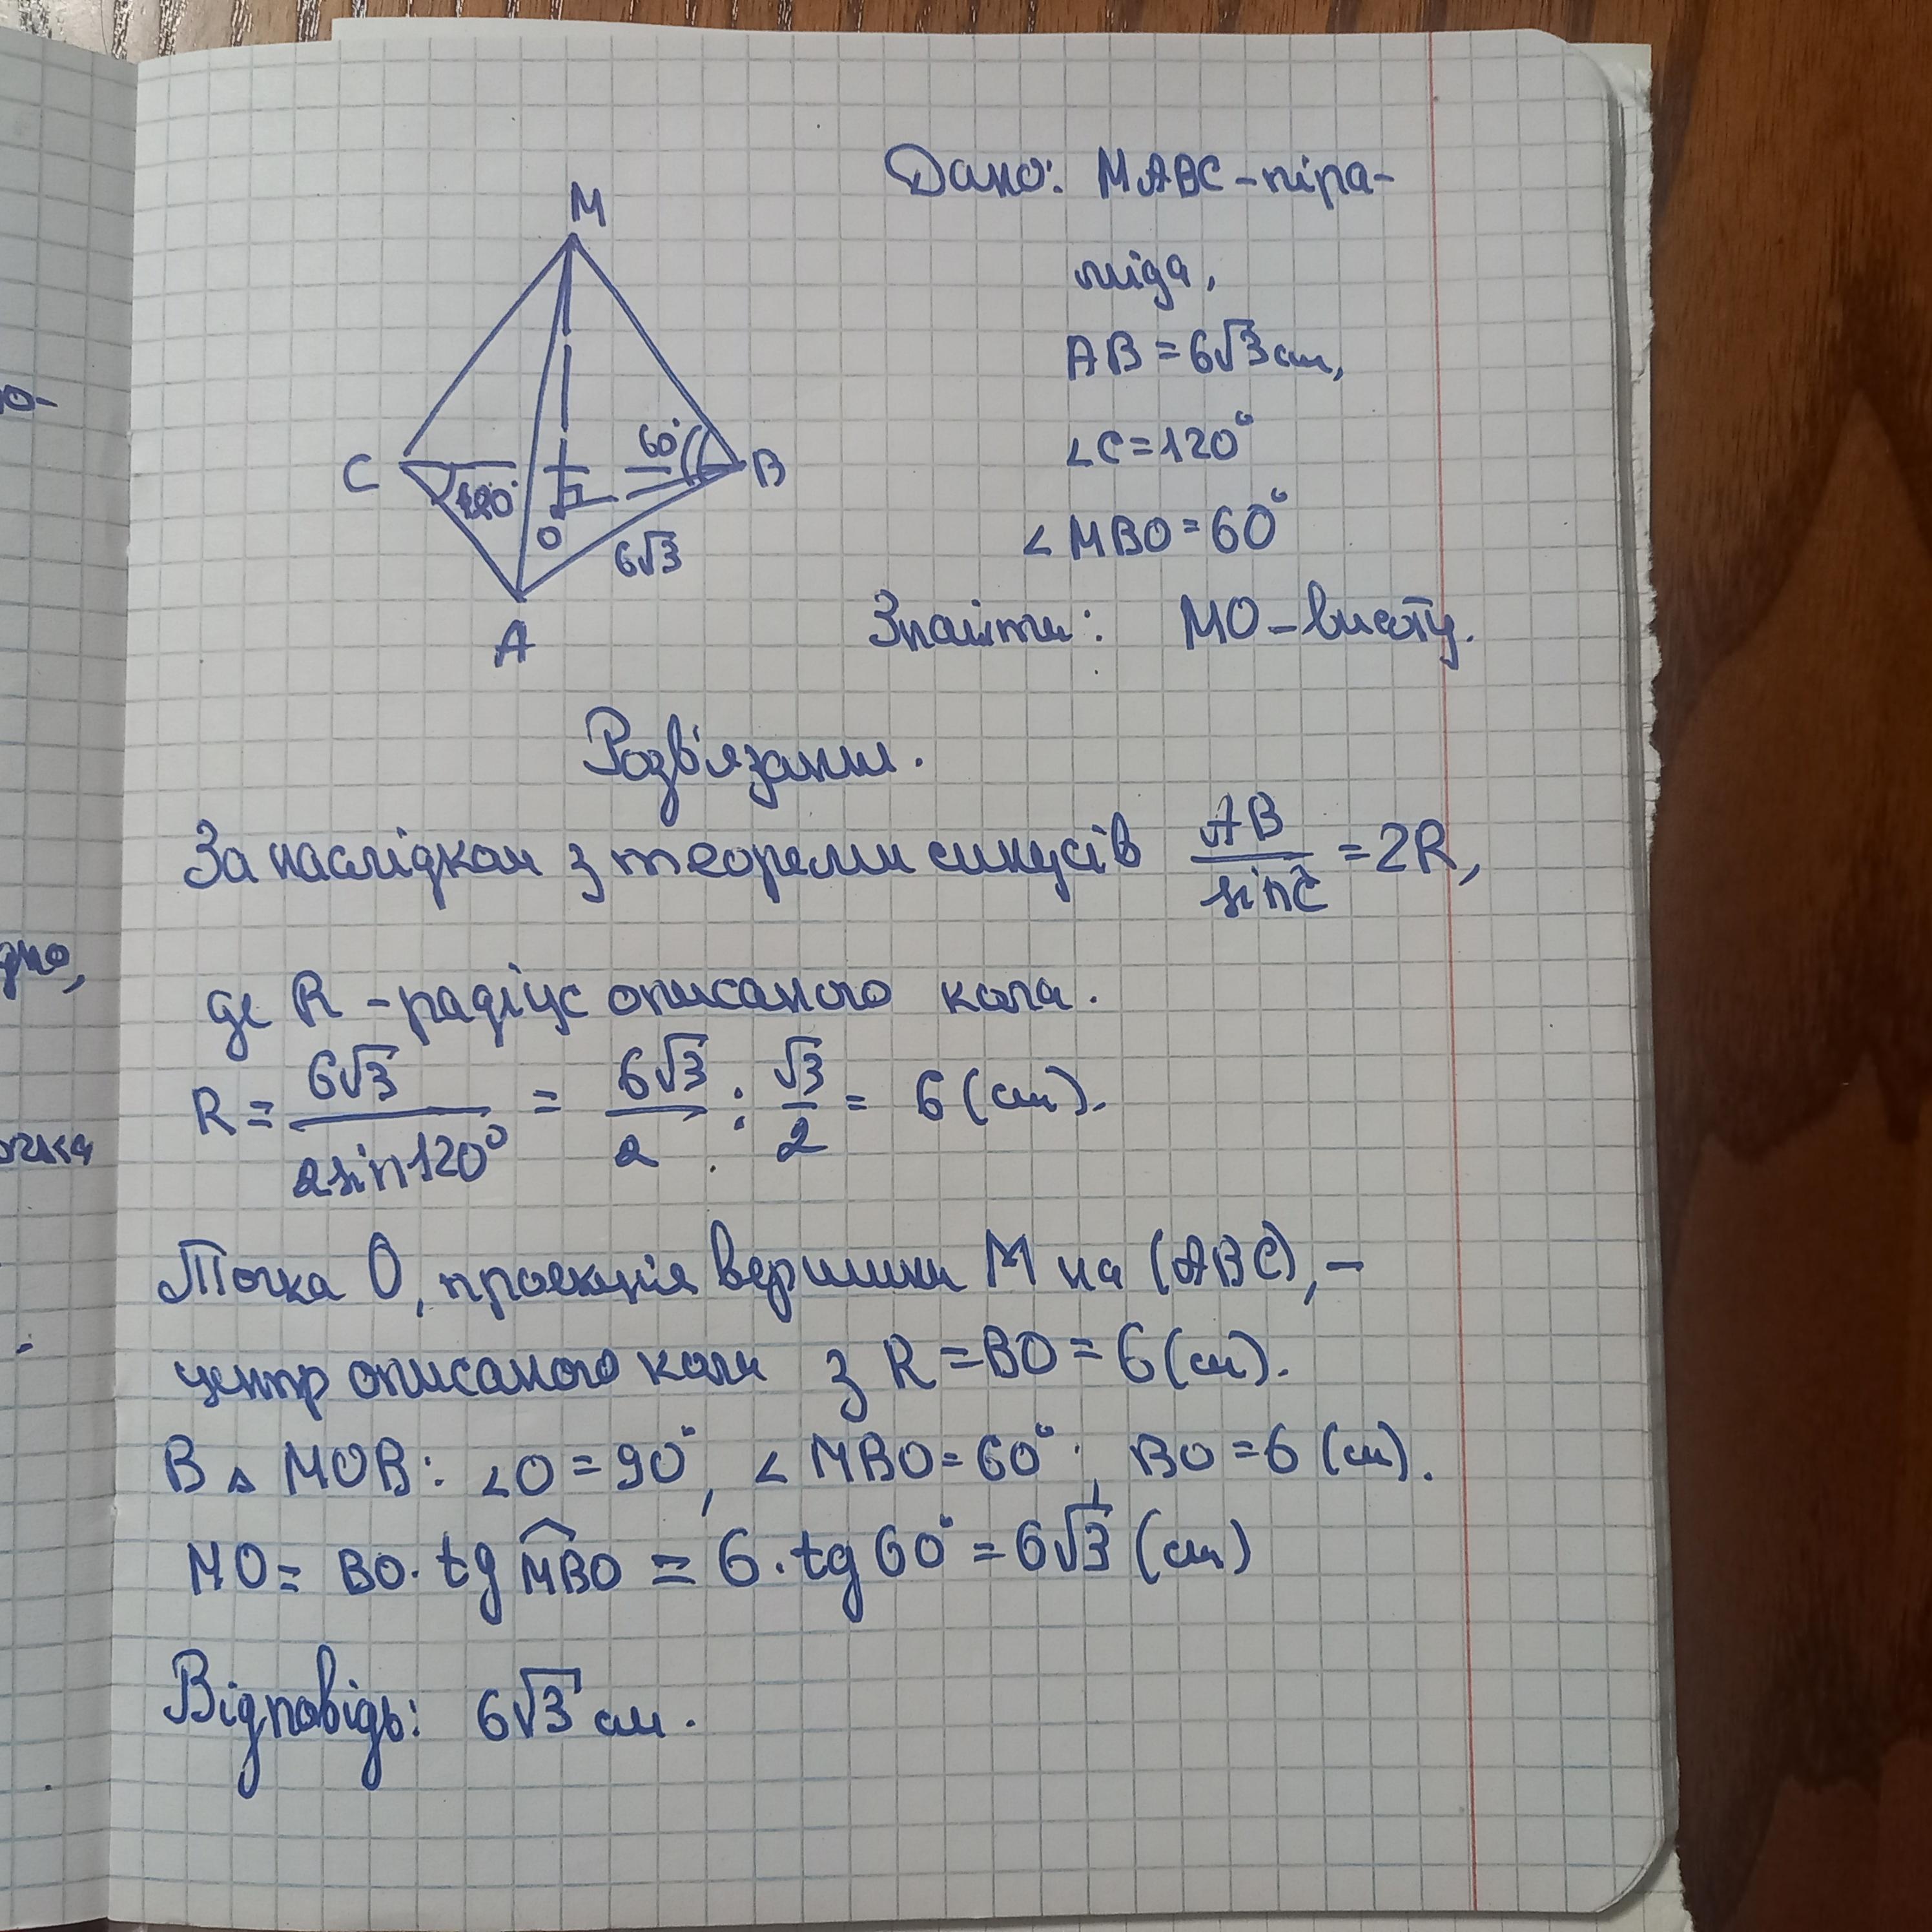 Дано: MABC-піра-
міда,
AB = 6√3 см,
∠C = 120°
∠MBO = 60°
Знайти: MO - висоту.
M
C
120°
60°
B
O
6√3
A
Розв'язання.
За наслідком з теореми синусів AB/sinC = 2R,
де R - радіус описаного кола.
R = 6√3/2sin120° = 6√3/2 : √3/2 = 6 (см).
Точка O, проекція вершини M на (ABC), -
центр описаного кола з R = BO = 6 (см).
В △ MOB: ∠O = 90°, ∠MBO = 60°, BO = 6 (см).
MO = BO · tg MBO = 6 · tg 60° = 6√3 (см)
Відповідь: 6√3 см.